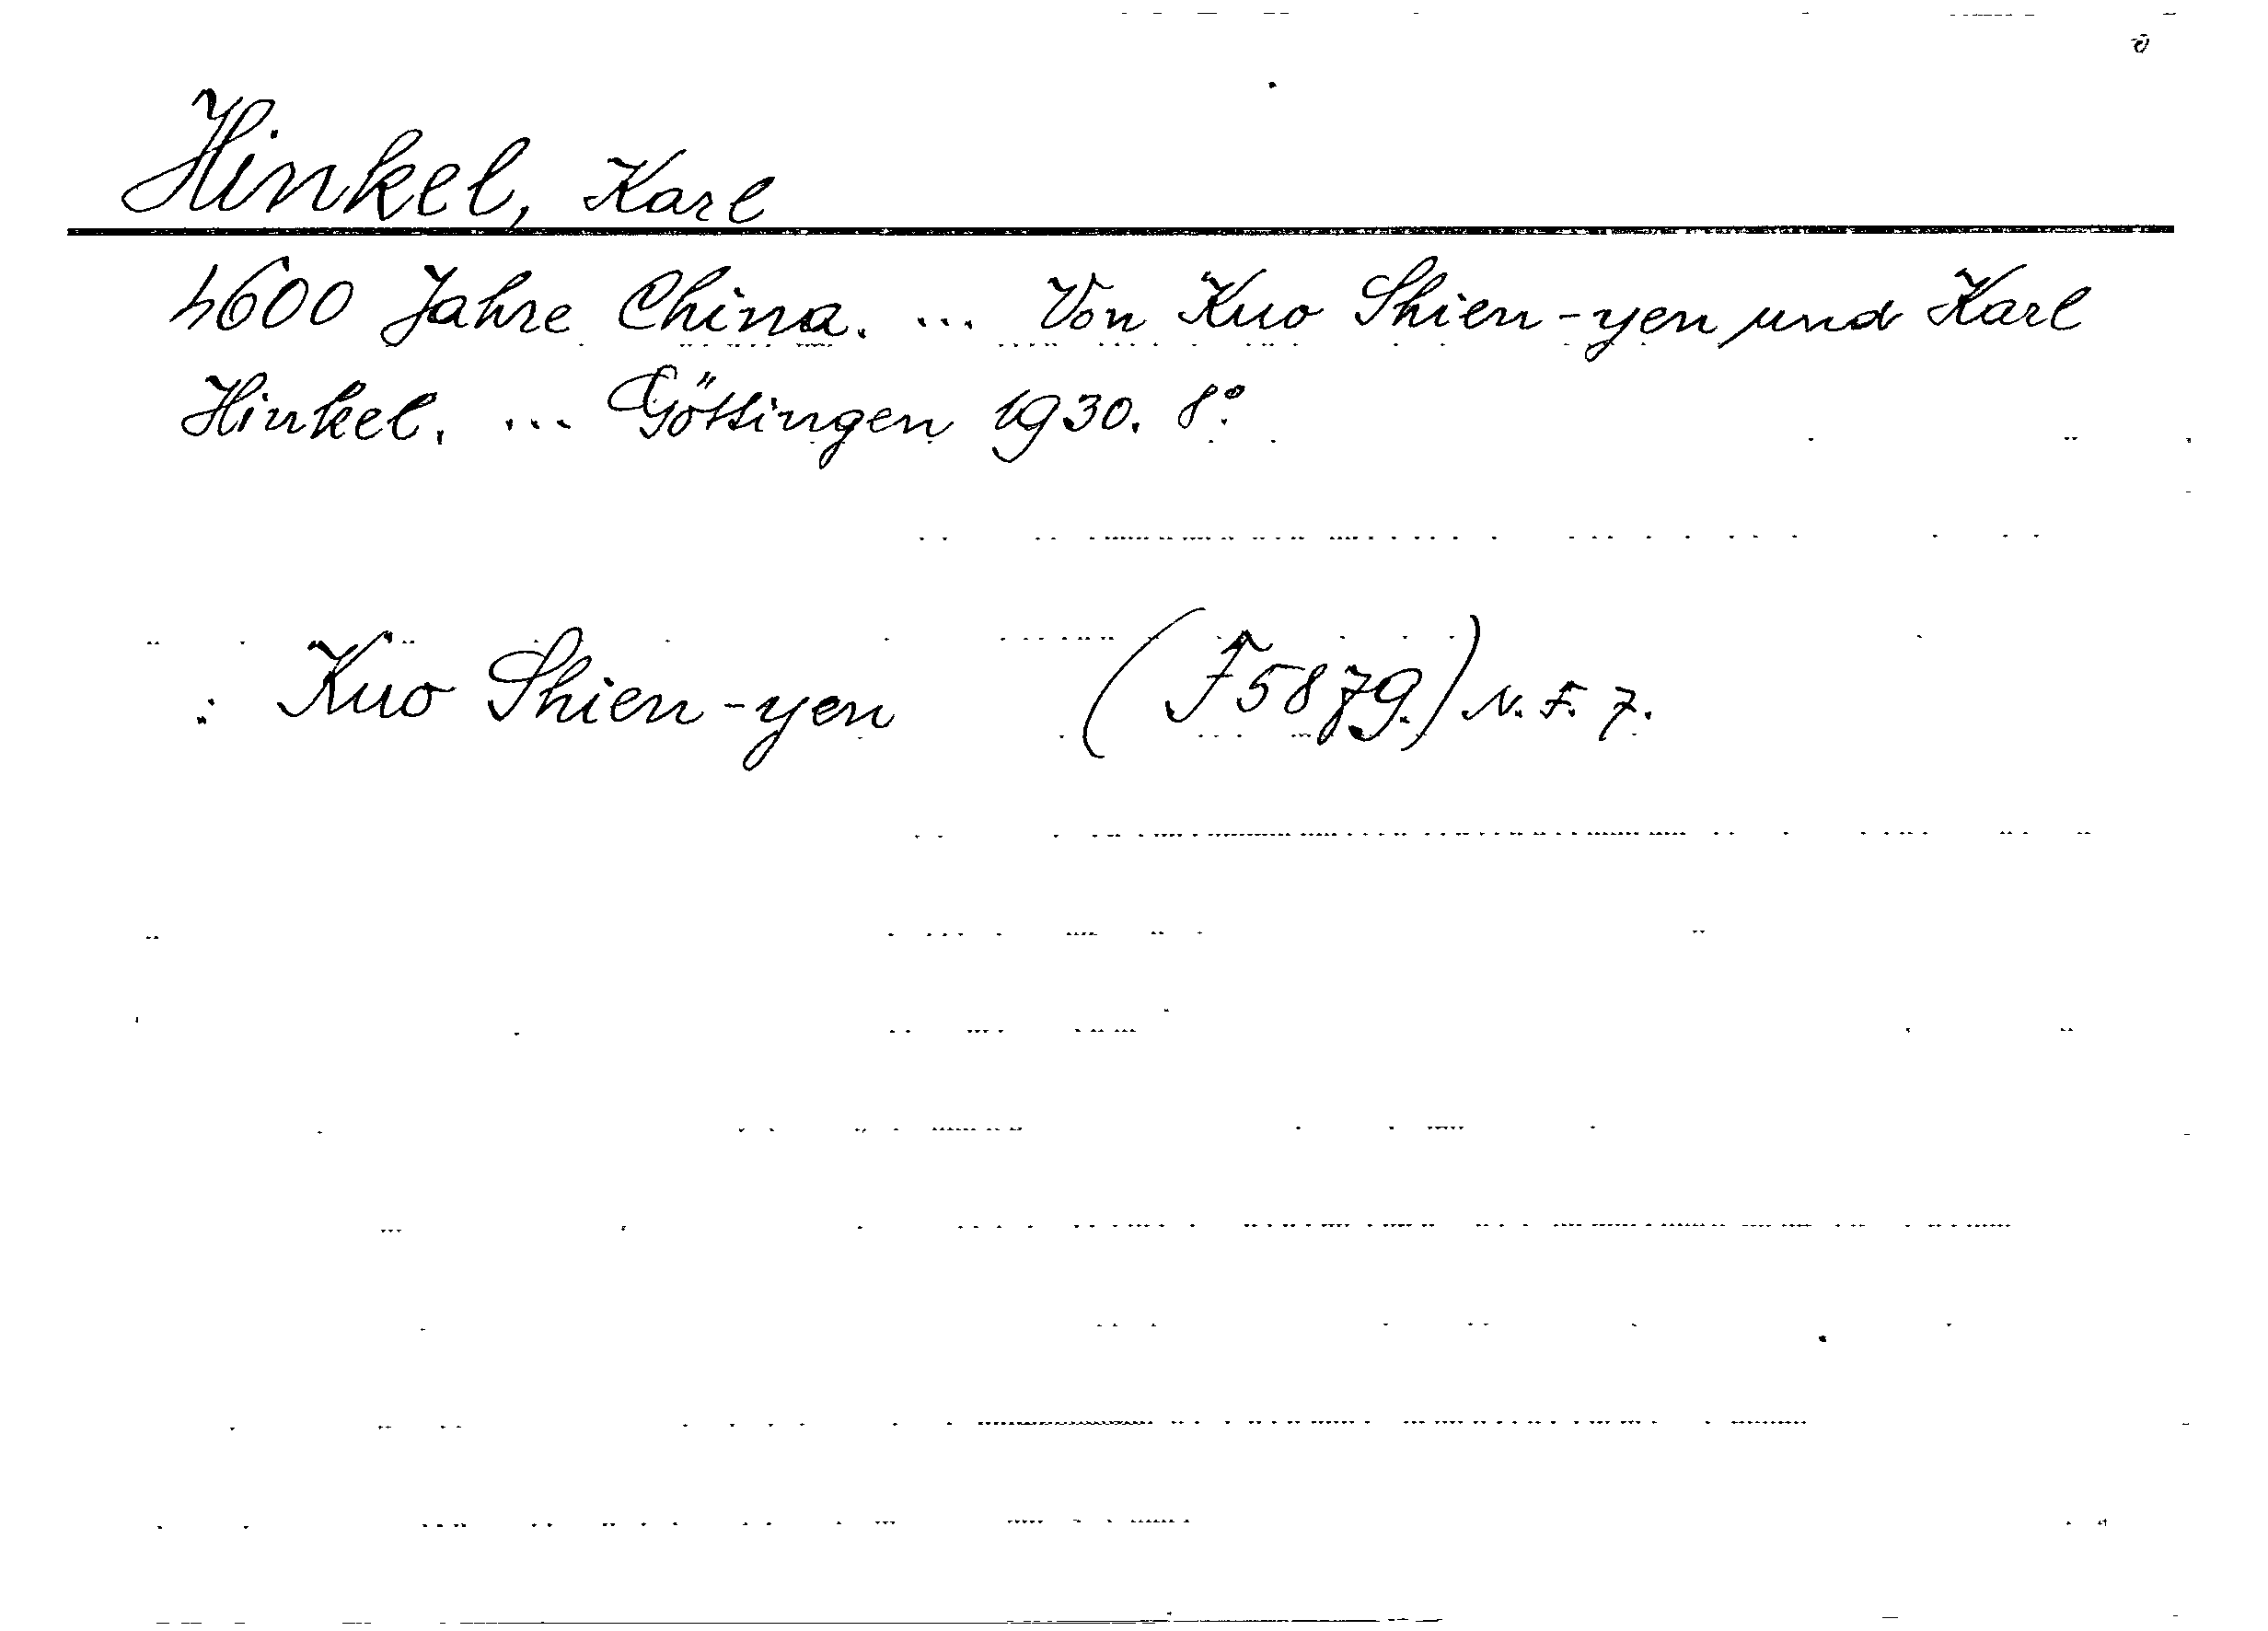 Hinkel, Karl
4600 Jahre China. ... Von Kuo Shien-yen und Karl
Hinkel. ... Göttingen 1930. 8°.
: Kuo Shien-yen (F 5879.) N. F. 7.